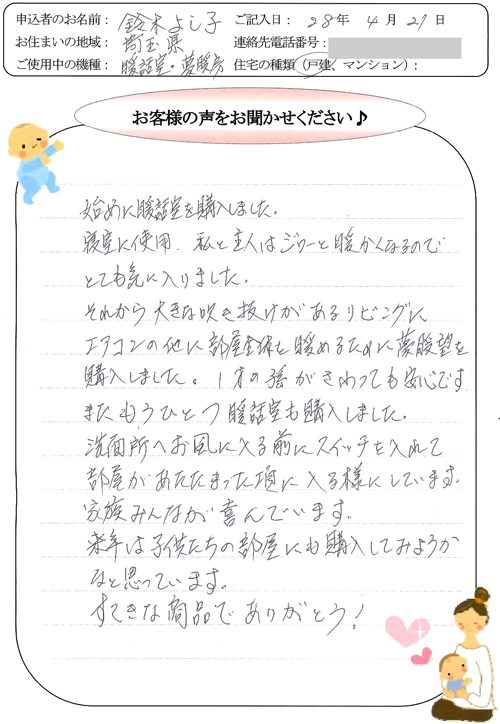 申込者のお名前： 鈴木よし子 ご記入日： 28年 4月 21日
お住まいの地域： 埼玉県 連絡先電話番号：
ご使用中の機種： 暖話室・夢暖房 住宅の種類（戸建、マンション）：
お客様の声をお聞かせください♪
始めに暖話室を購入しました。
寝室に使用、私と主人はジワーと暖かくなるので
とても気に入りました。
それから大きな吹き抜けがあるリビングに
エアコンの他に部屋全体を暖めるために夢暖望を
購入しました。1才の孫がさわっても安心です
またもうひとつ暖話室も購入しました。
洗面所へお風呂に入る前にスイッチを入れて
部屋があたたまった頃に入る様にしています。
家族みんなが喜んでいます。
来年は子供たちの部屋にも購入してみようか
なと思っています。
すてきな商品でありがとう！